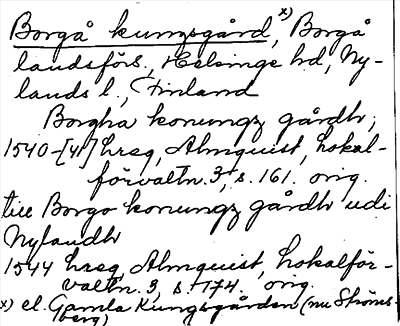 Borgå kungsgård, x) Borgå
landsförs., Helsinge hd, Ny-
lands l., Finland
Borgha konungz gårdh,
1540-[41] hrsg, Almquist, Lokal-
förvaltn. 3, s. 161. orig.
till Borgo konungz gårdh udi
Nylandh
1544 hrsg, Almquist, Lokalför-
valtn. 3, s. 174. orig.
x) el. Gamla Kungsgården (nu Ströms-
berg)